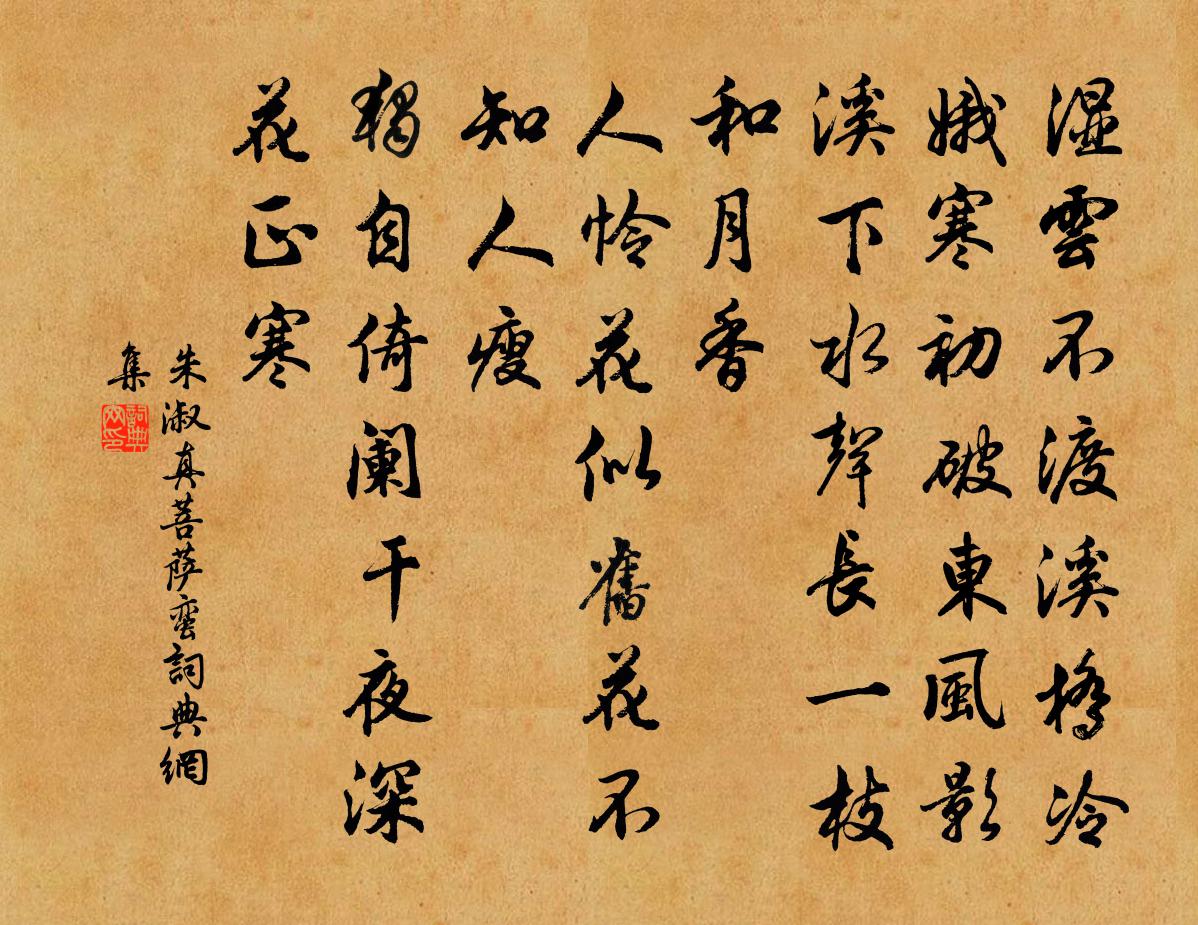 濕雲不渡溪橋冷
娥寒初破東風影
溪下水聲長一枝
和月香
人怜花似舊花不
知人瘦
獨自倚闌干夜深
花正寒
朱淑真菩薩蠻詞典網
集
詞典
网印